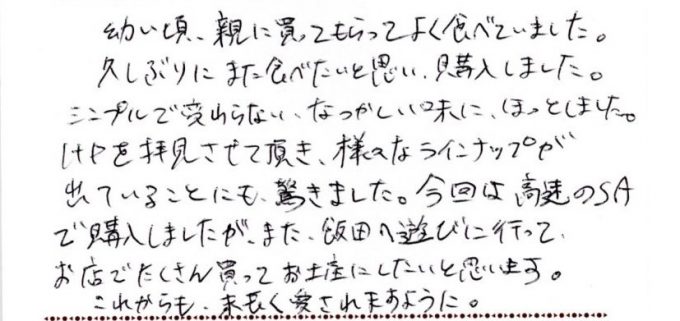 幼い頃、親に買ってもらってよく食べていました。
久しぶりにまた食べたいと思い、購入しました。
シンプルで変わらない、なつかしい味に、ほっとしました。
HPを拝見させて頂き、様々なラインナップが
出ていることにも、驚きました。今回は高速のSA
で購入しましたが、また、飯田へ遊びに行って、
お店でたくさん買ってお土産にしたいと思います。
これからも、末長く愛されますように。